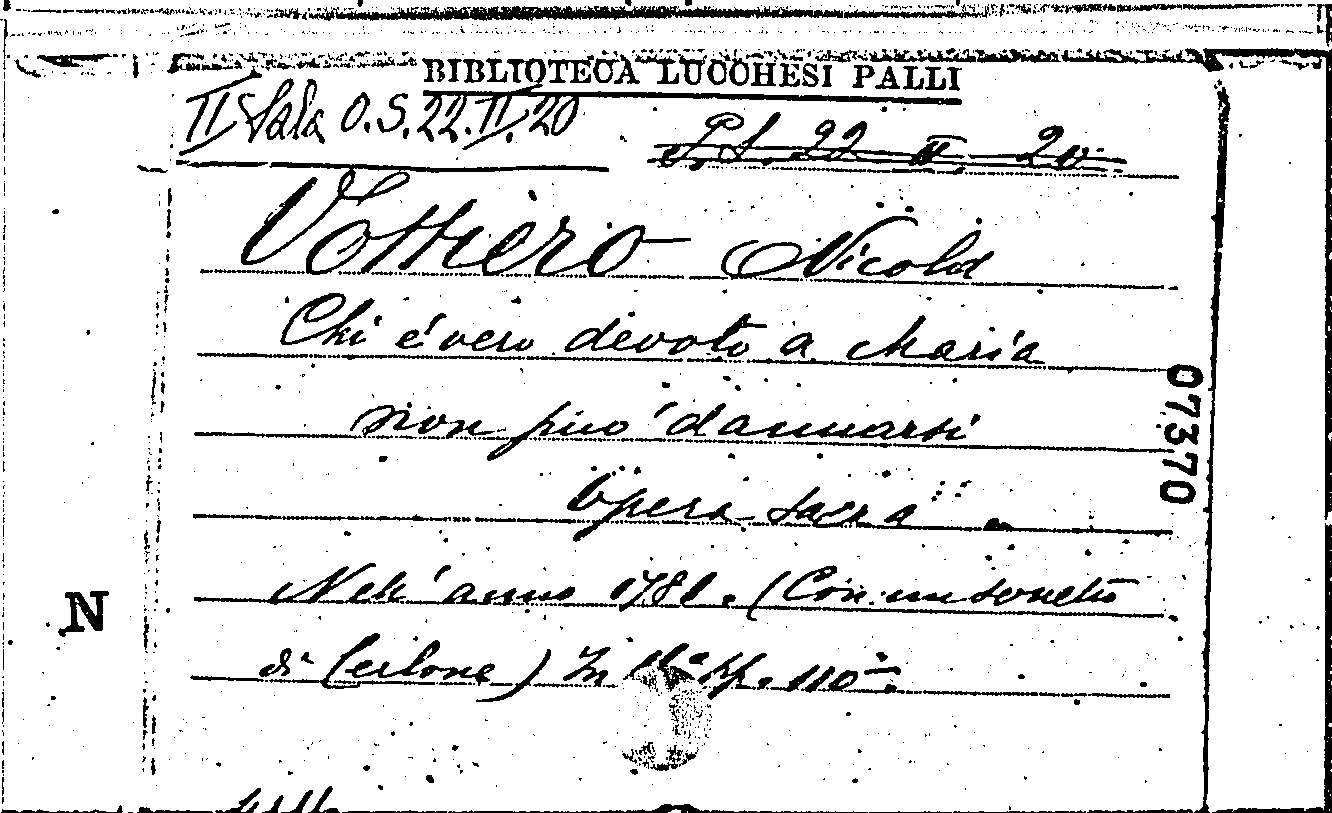 BIBLIOTECA LUCCHESI PALLI
II Sala O.S. 22. II. 20
22 II. 20
Vottiero Nicola
Chi é vero devoto a Maria
non può dannarsi
Opera sacra
Nell'anno 1781. (Con un sonetto
di Cerlone) In 11° pp. 110
07370
N